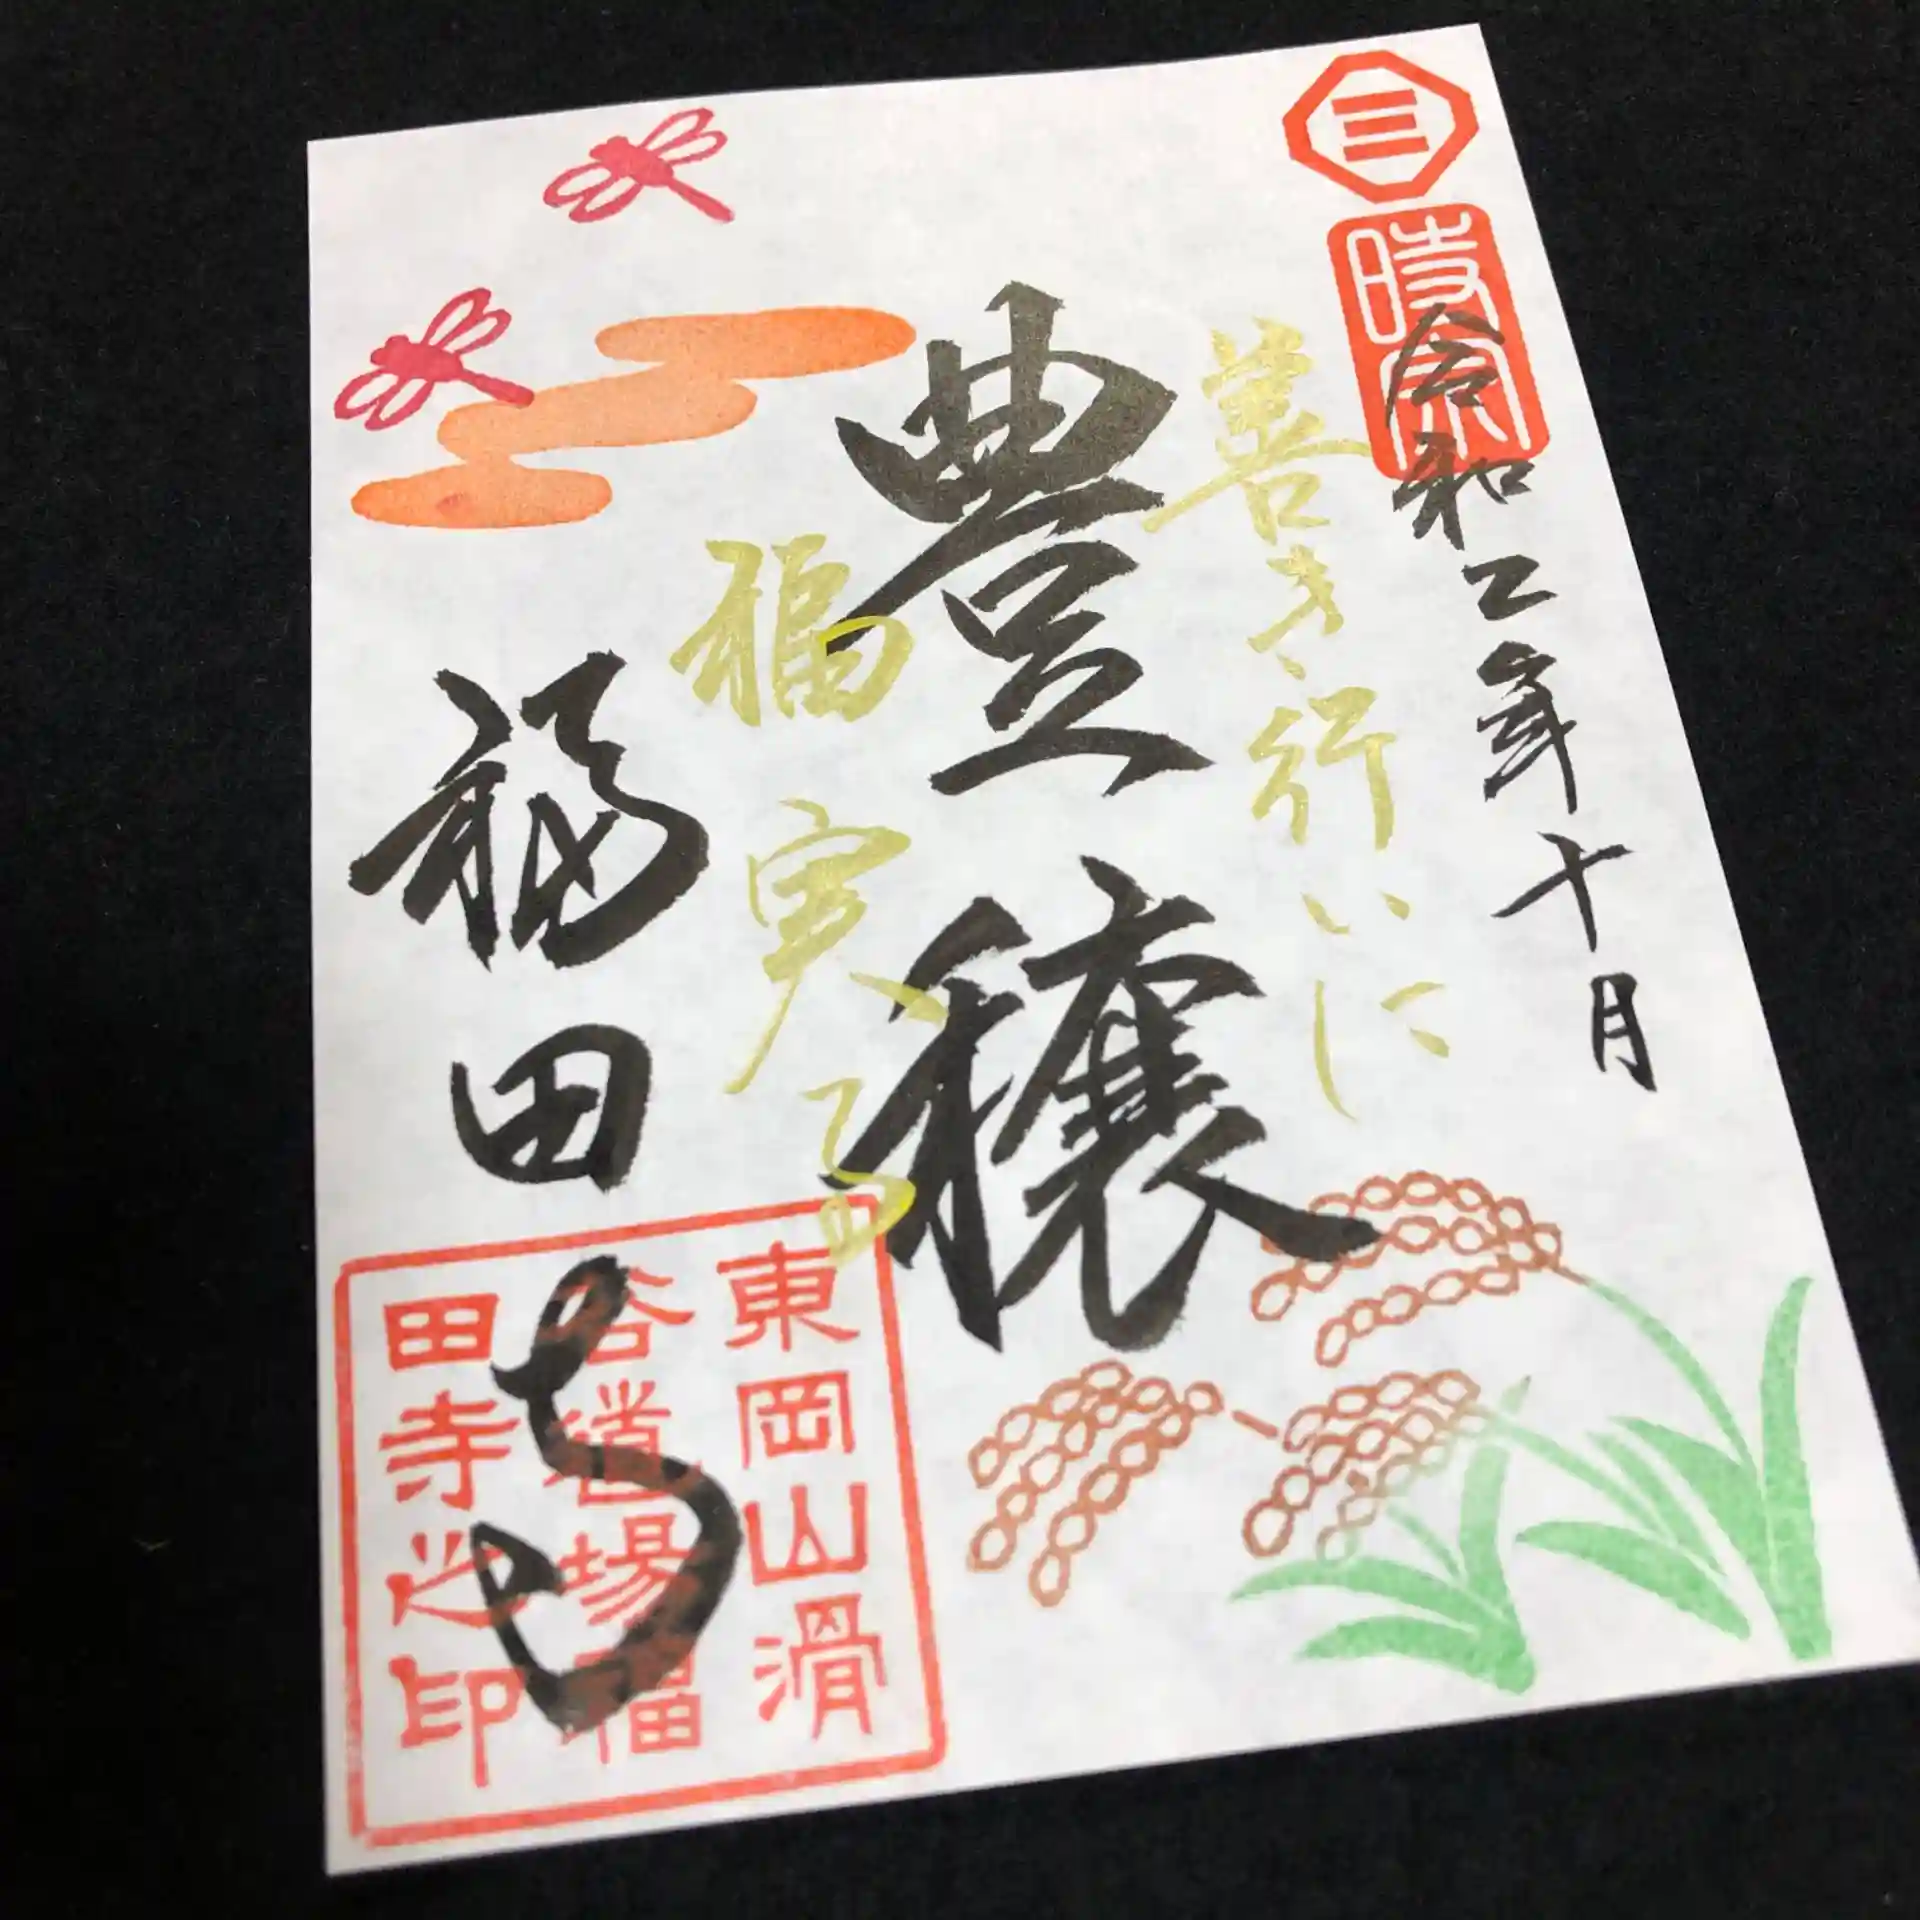 三
時宗
令和二年十月
善き行いに
豊穣
福実る
福田寺
東岡山滑
谷道場福
田寺之印